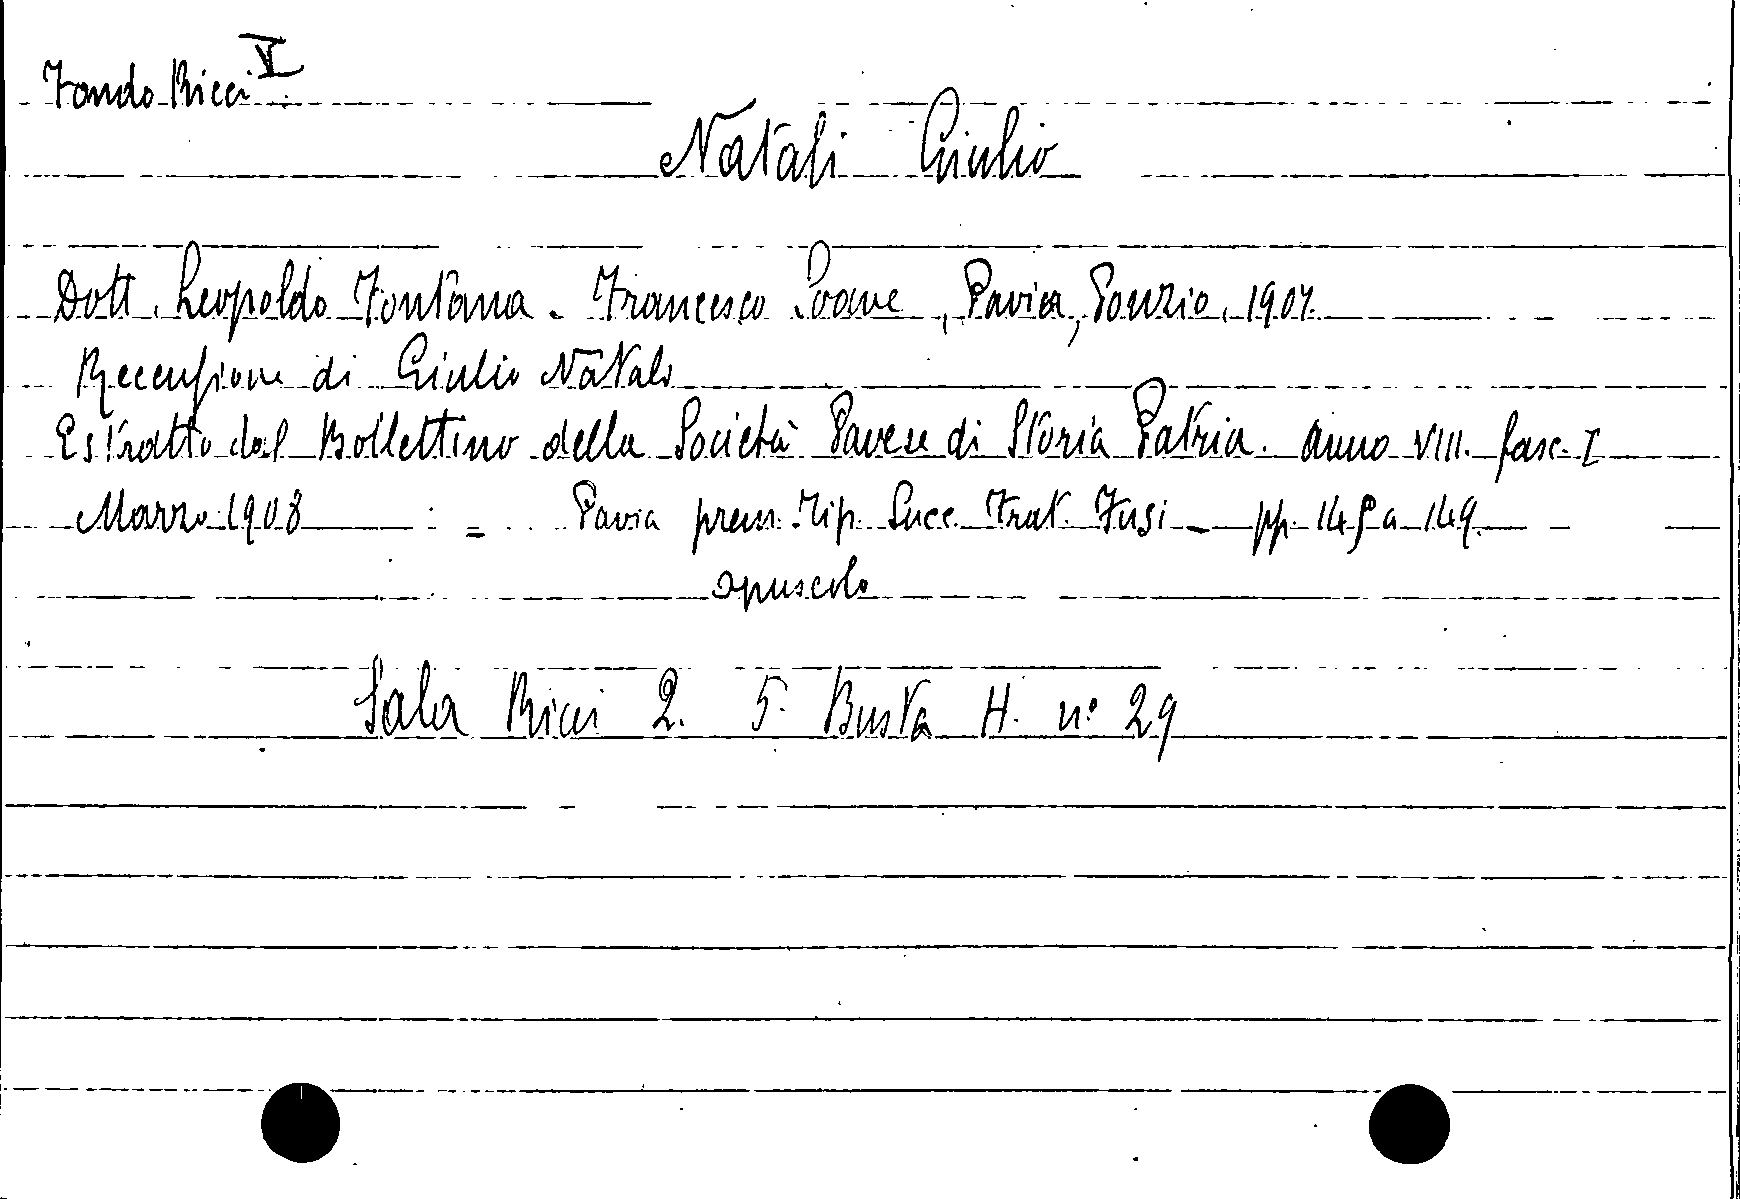 Fondo Ricci V
Natali Giulio
Dott. Leopoldo Fontana. Francesco Soave, Pavia, Ponzio, 1907.
Recensione di Giulio Natali
Estratto dal Bollettino della Società Pavese di Storia Patria. Anno VIII. fasc. I
Marzo 1908 = Pavia prem. Tip. Succ. Frat. Fusi - pp. 145 a 149.
opuscolo
Sala Ricci 2. 5. Busta H. n° 29